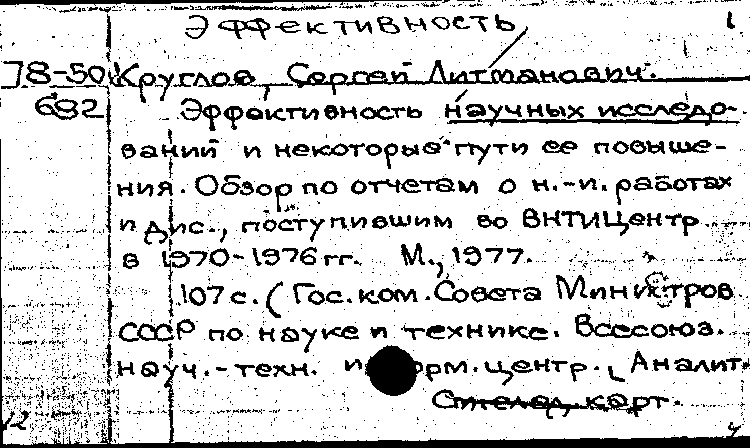 Эффективность 1
78-50 Круглов, Сергей Литманович.
682 Эффективность научных исследо-
ваний и некоторые пути ее повыше-
ния. Обзор по отчетам о н.-и. работах
и дис., поступившим во ВНТИЦентр
в 1970-1976 гг. М., 1977.
107 с. (Гос. ком. Совета Министров
СССР по науке и технике. Всесоюз.
науч.-техн. и орм. центр. Аналит.
карт.
12